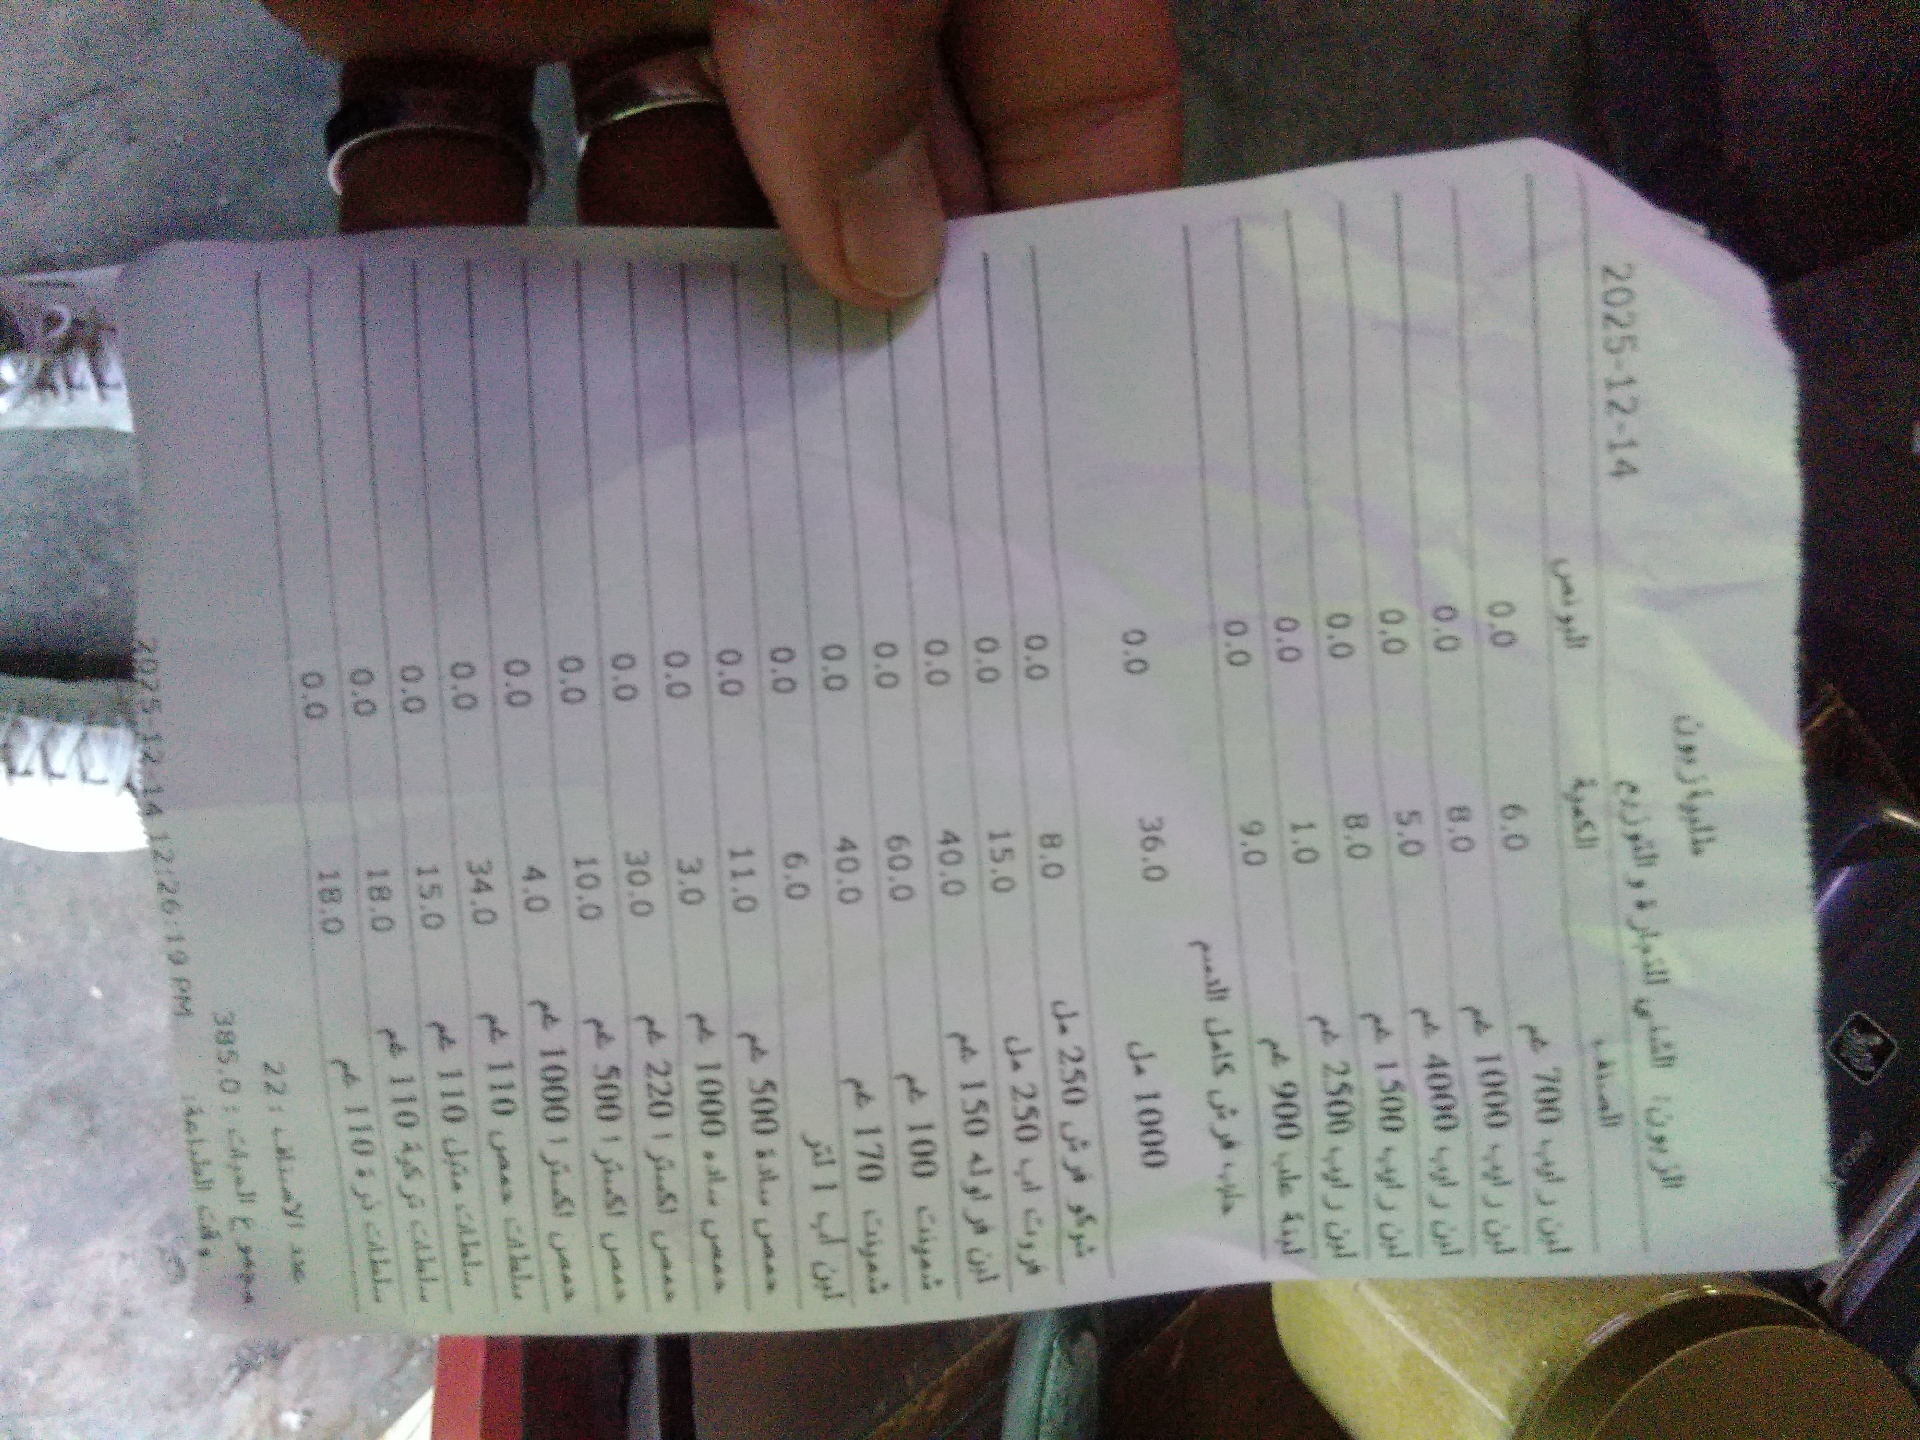 مطلوبة زبون
2025-12-14
الزبون: الشني التجارة و التوزيع
الصنف الكمية البونص
لبن رايب 700 غم 6.0 0.0
لبن رايب 1000 غم 8.0 0.0
لبن رايب 4000 غم 5.0 0.0
لبن رايب 1500 غم 8.0 0.0
لبن رايب 2500 غم 1.0 0.0
لبنة علب 900 غم 9.0 0.0
حليب فرش كامل الدسم
1000 مل 36.0 0.0
شوكو فرش 250 مل 8.0 0.0
فروت اب 250 مل 15.0 0.0
لبن فراوله 150 غم 40.0 0.0
شمينت 100 غم 60.0 0.0
شمينت 170 غم 40.0 0.0
لبن اب 1 لتر 6.0 0.0
حمص سادة 500 غم 11.0 0.0
حمص ساده 1000 غم 3.0 0.0
حمص اكسترا 220 غم 30.0 0.0
حمص اكسترا 500 غم 10.0 0.0
حمص اكسترا 1000 غم 4.0 0.0
سلطات حمص 110 غم 34.0 0.0
سلطات متبل 110 غم 15.0 0.0
سلطات تركية 110 غم 18.0 0.0
سلطات ذرة 110 غم 18.0 0.0
عدد الاصناف : 22
مجموع الحبات : 385.0
وقت الطباعة: 2025-12-14 12:26:19 PM